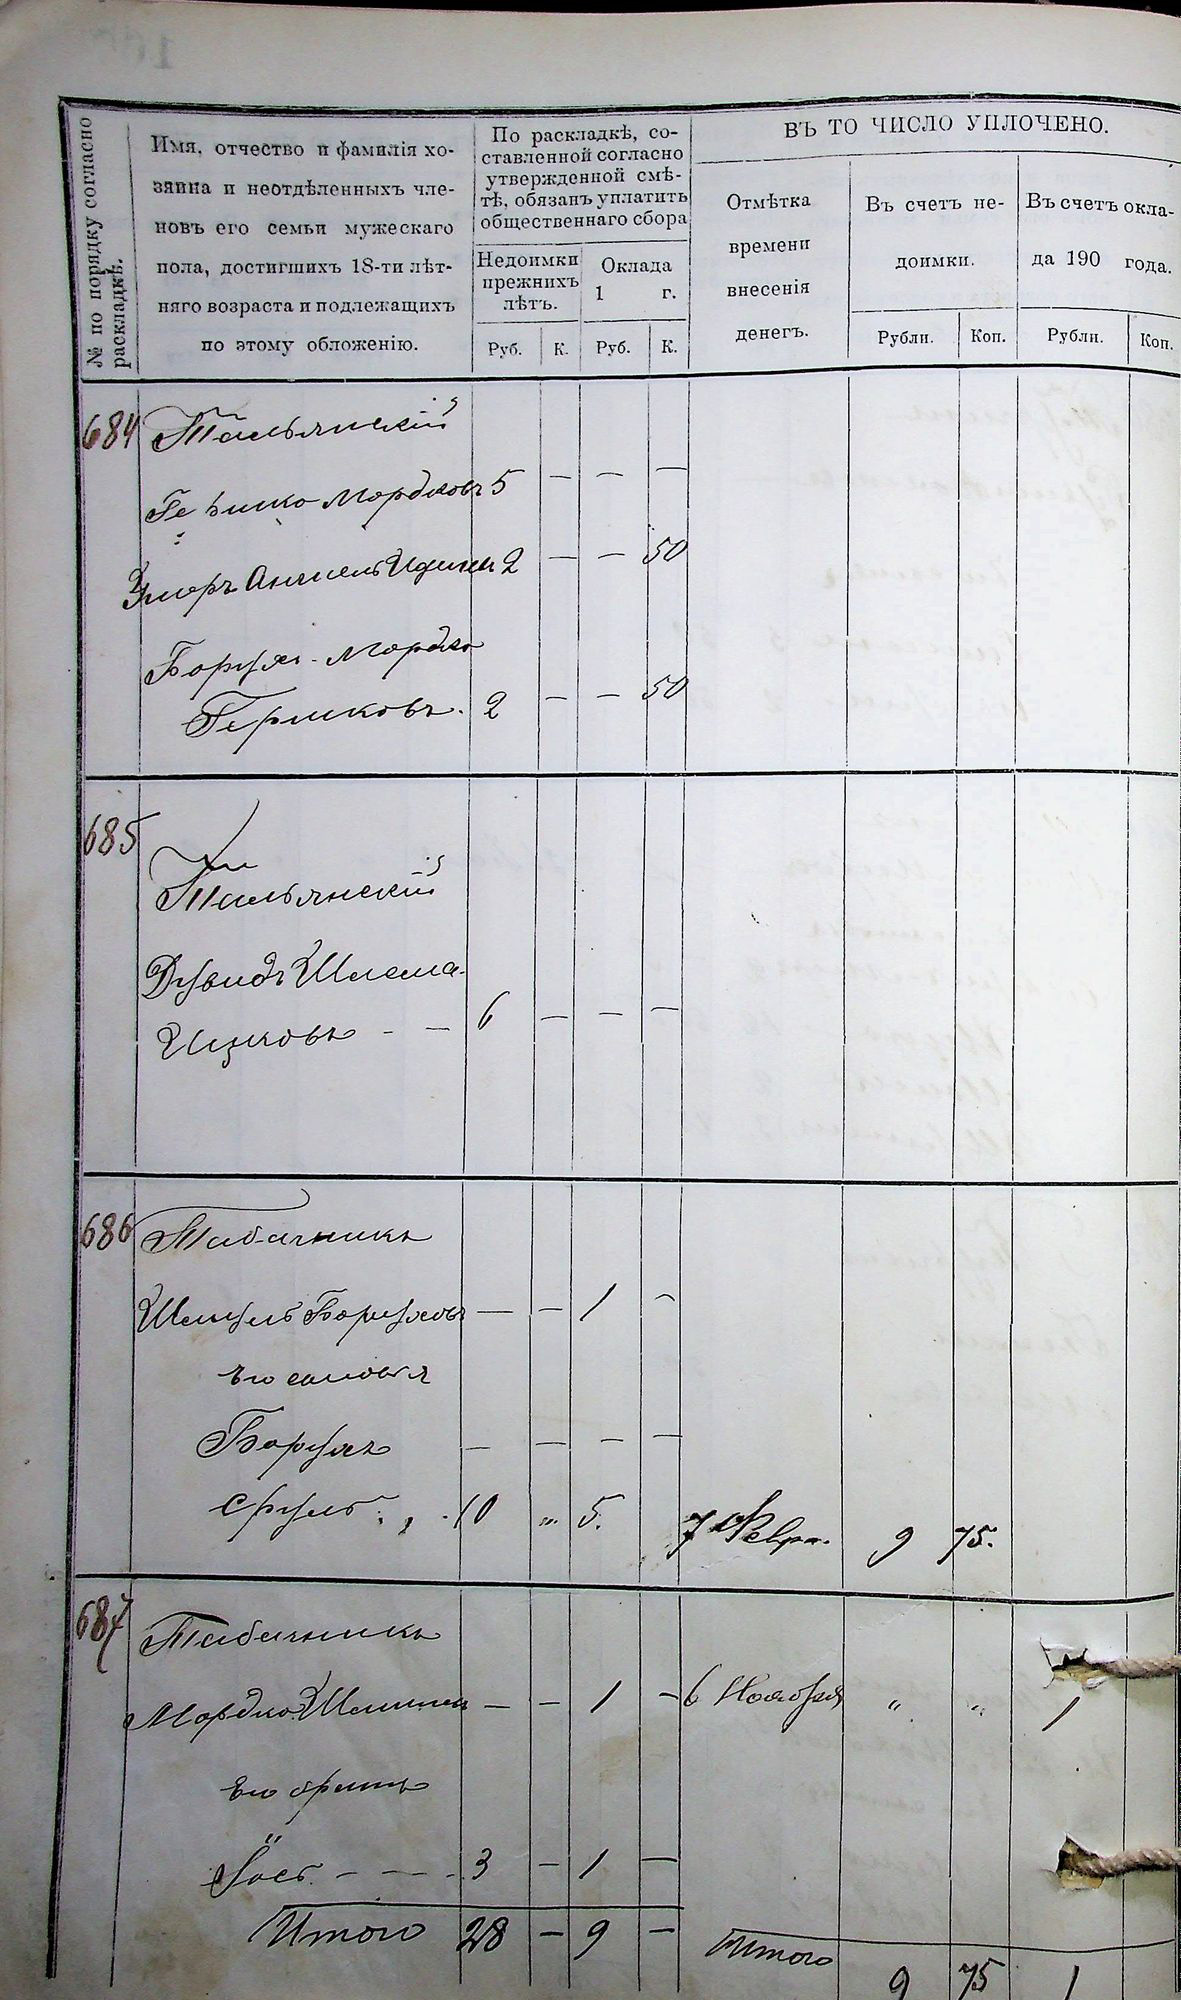 № по порядку согласно
раскладкѣ.
Имя, отчество и фамилія хо-
зяина и неотдѣленныхъ чле-
новъ его семьи мужескаго
пола, достигшихъ 18-ти лѣт-
няго возраста и подлежащихъ
по этому обложенію.
По раскладкѣ, со-
ставленной согласно
утвержденной смѣ-
тѣ, обязанъ уплатить
общественнаго сбора
Недоимки
прежнихъ
лѣтъ.
Оклада
1 г.
Руб. К. Руб. К.
ВЪ ТО ЧИСЛО УПЛОЧЕНО.
Отмѣтка
времени
внесенія
денегъ.
Въ счетъ не-
доимки.
Въ счетъ окла-
да 190 года.
Рубли. Коп. Рубли. Коп.
684 Тальянскій
Гершко Мордковъ 5 — — —
Анчель Идели 2 — — 50
Борухъ-Мордко
Гершковъ. 2 — — 50
685
Тальянскій
Дувидъ Шлема-
Ицковъ - — 6 — — —
686 Табачникъ
Шмуль Боруховъ — — 1 -
его сыновья
Борухъ — — — —
Сруль 10 " 5. 7 Февр. 9 75.
687 Табачникъ
Мордко — — 1 — 6 Ноября " " 1
его братъ
Іось — — - 3 — 1 —
Итого 28 — 9 —
Итого 9 75 1